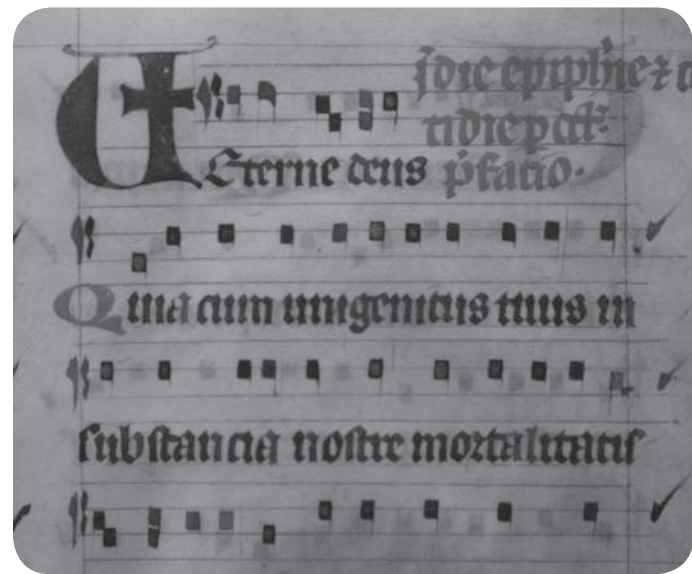 J̄ die epiph̄ie ⁊
tidie p oct̄
Eterne deus p̄fatio.
Quia cum unigenitus tuus in
substancia nostre mortalitatis